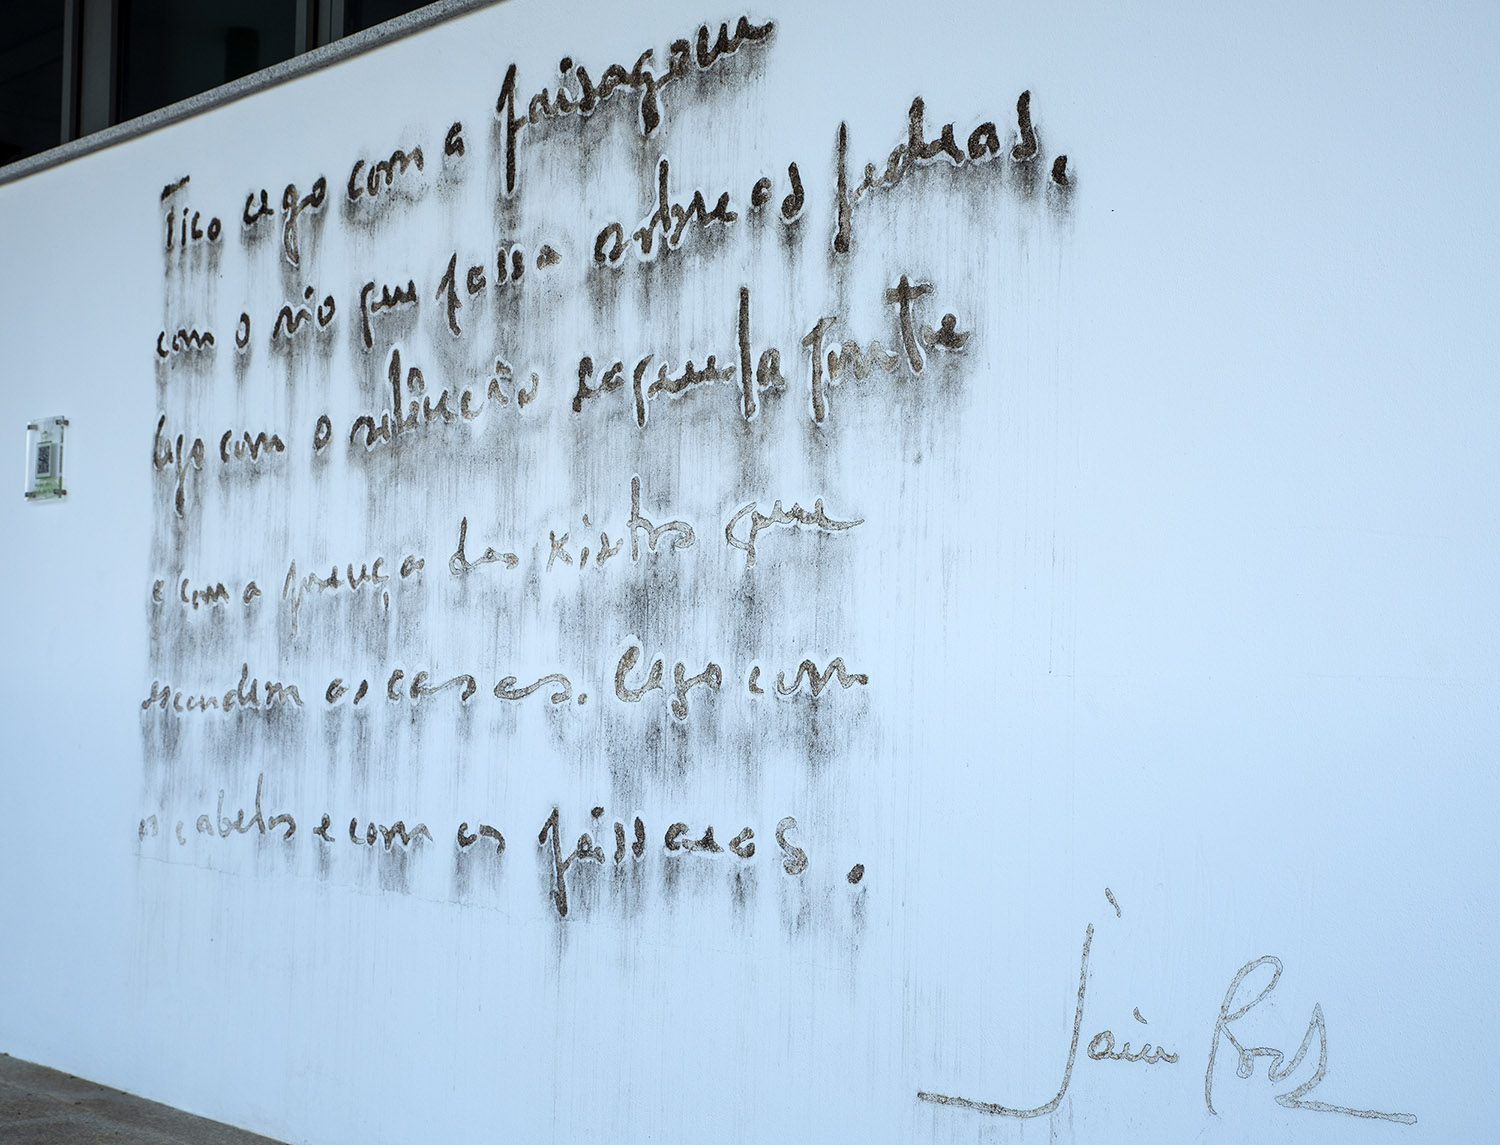 Fico cego com a paisagem
com o rio que passa sobre as pedras,
cego com o silêncio daquela fonte
e com a dos xistos que
escondem as casas. Cego com
os cabelos e com os pássaros.